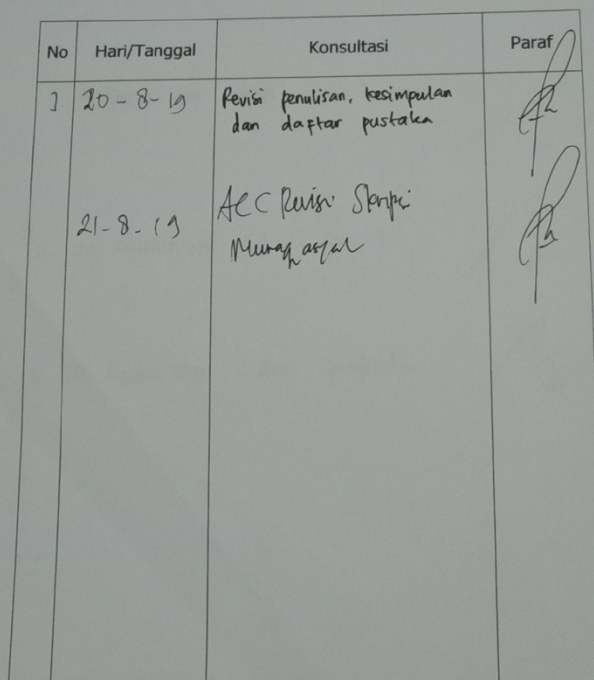 No Hari/Tanggal Konsultasi Paraf
1 20-8-19 Revisi penulisan, kesimpulan
dan daftar pustaka
21-8-19 ACC Revisi Skripsi
Munaqasyah